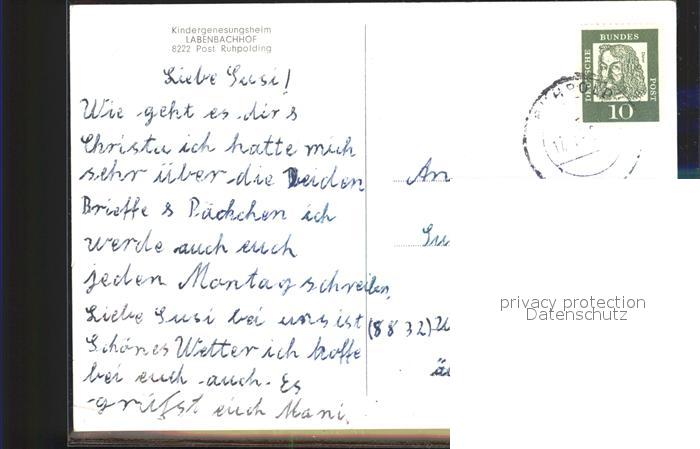 Kindergenesungsheim
LABENBACHHOF
8222 Post Ruhpolding
Liebe Susi!
Wie geht es dir s
Christa ich hatte mich
sehr über die beiden
Brieffe s Päckchen ich
werde auch euch
jeden Montag schreiben,
Liebe Susi bei uns ist
Schönes Wetter ich hoffe
bei euch auch. Es
grüßt euch Mani.
An
Su
(8832)
DEUTSCHE
BUNDES
POST
10
RUHPOLD
privacy protection
Datenschutz